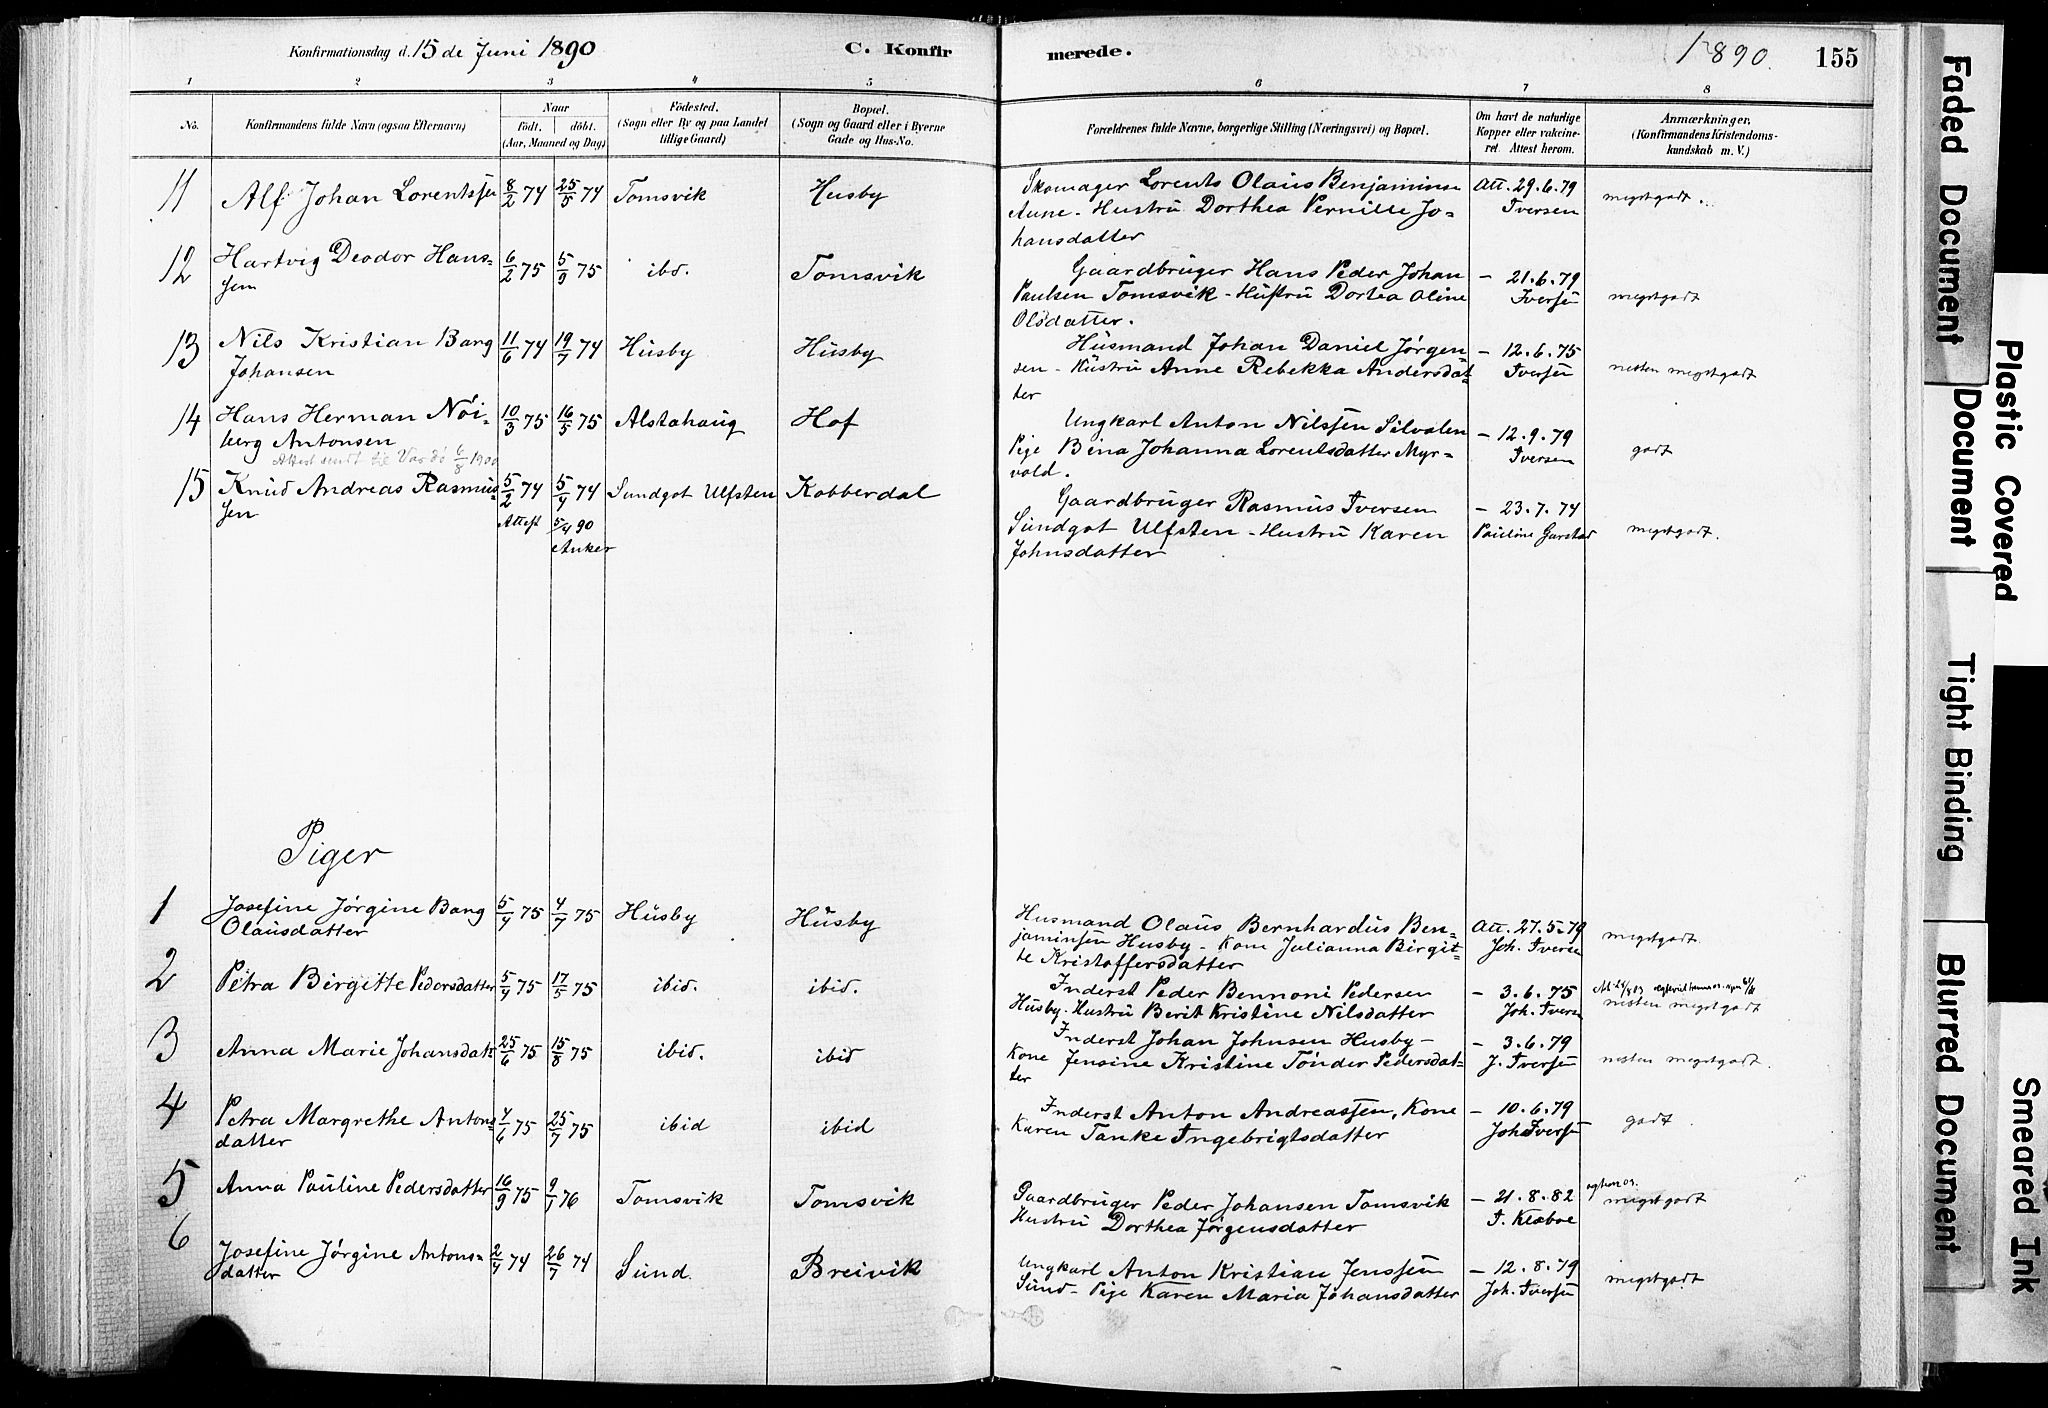 Konfirmationsdag d. 15 de Juni 1890 C. Konfir merede. 1890. 155
1 2 3 4 5 6 7 8
No. Konfirmandens fulde Navn (ogsaa Efternavn) Naar födt. döbt. (Aar, Maaned og Dag) Födested. (Sogn eller By og paa Landet tillige Gaard) Bopæl. (Sogn og Gaard eller i Byerne Gade og Hus-No. Forældrenes fulde Navne, borgerlige Stilling (Næringsvei) og Bopæl. Om havt de naturlige Kopper eller vakcineret. Attest herom. Anmærkninger, (Konfirmandens Kristendomskundskab m. V.)
11 Alf Johan Lorentssen 8/2 74 25/5 74 Tomsvik Husby Skomager Lorents Olaus Benjaminsen Att. 29.6.79 megetgodt.
Aune - Hustru Dorthea Pernille Jo- Iversen
hansdatter
12 Hartvig Deodor Hans- 6/2 75 5/9 75 ibd. Tomsvik Gaardbruger Hans Peder Johan - 21.6.79
sen Paulsen Tomsvik - Hustru Dortea Oline Iversen megetgodt
Olsdatter.
13 Nils Kristian Bang 11/6 74 19/7 74 Husby Husby Husmand Johan Daniel Jørgen- - 12.6.75
Johansen sen - Hustru Anne Rebekka Andersdat- Iversen nesten megetgodt
ter
14 Hans Herman Nöi- 10/3 75 16/5 75 Alstahaug Hof Ungkarl Anton Nilssen Silvalen - 12.9.79
berg Antonsen Pige Bina Johanna Lorentsdatter Myr- Iversen godt
Attest sendt til Vardö 6/8 1900 vold.
15 Knud Andreas Rasmus- 5/2 74 5/4 74 Sundgot Ulfsten Kobberdal Gaardbruger Rasmus Iversen - 23.7.74
sen Attest 5/4 90 Anker Sundgot Ulfsten - Hustru Karen Pauline Garstad megetgodt.
Johnsdatter
Piger
1 Josefine Jørgine Bang 5/4 75 4/7 75 Husby Husby Husmand Olaus Bernhardus Ben- Att. 27.5.79
Olausdatter jaminsen Husby - Kone Julianna Birgit- Joh. Iversen megetgodt.
te Kristoffersdatter
2 Petra Birgitte Pedersdatter 5/4 75 17/5 75 ibid. ibid. Inderst Peder Bennoni Pedersen - 3.6.75
Husby. Hustru Berit Kristine Nilsdatter Joh. Iversen nesten megetgodt
3 Anna Marie Johansdatt 25/6 75 15/8 75 ibid. ibid Inderst Johan Johnsen Husby - - 3.6.79
Kone Jensine Kristine Tönder Pedersdat- J. Iversen nesten megetgodt.
ter
4 Petra Margrethe Antons- 4/6 75 25/7 75 ibid ibid Inderst Anton Andreassen, Kone - 10.6.79
datter Karen Tanke Ingebrigtsdatter Joh Iversen godt.
5 Anna Pauline Pedersdatter 16/9 75 9/1 76 Tomsvik Tomsvik Gaardbruger Peder Johansen Tomsvik - 21.8.82 megetgodt
Hustru Dorthea Jørgensdatter
6 Josefine Jørgine Antons- 2/4 74 26/7 74 Sund. Breivik Ungkarl Anton Kristian Jenssen - 12.8.79
datter Sund - Pige Karen Maria Johansdatter Joh. Iversen megetgodt
Faded Document
Plastic Covered Document
Tight Binding
Blurred Document
Smeared Ink